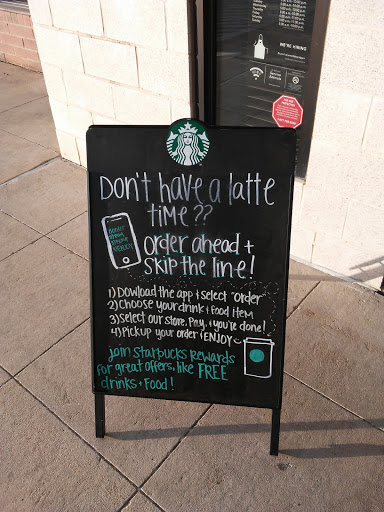 WE'RE HIRING
Don't have a latte
time??
order ahead +
skip the line!
1) Dowload the app + select "order"
2) Choose your drink + food item
3) Select our store, Pay, + you're done!
4) Pick up your order + ENJOY
join Starbucks Rewards
for great offers, like FREE
drinks + food!